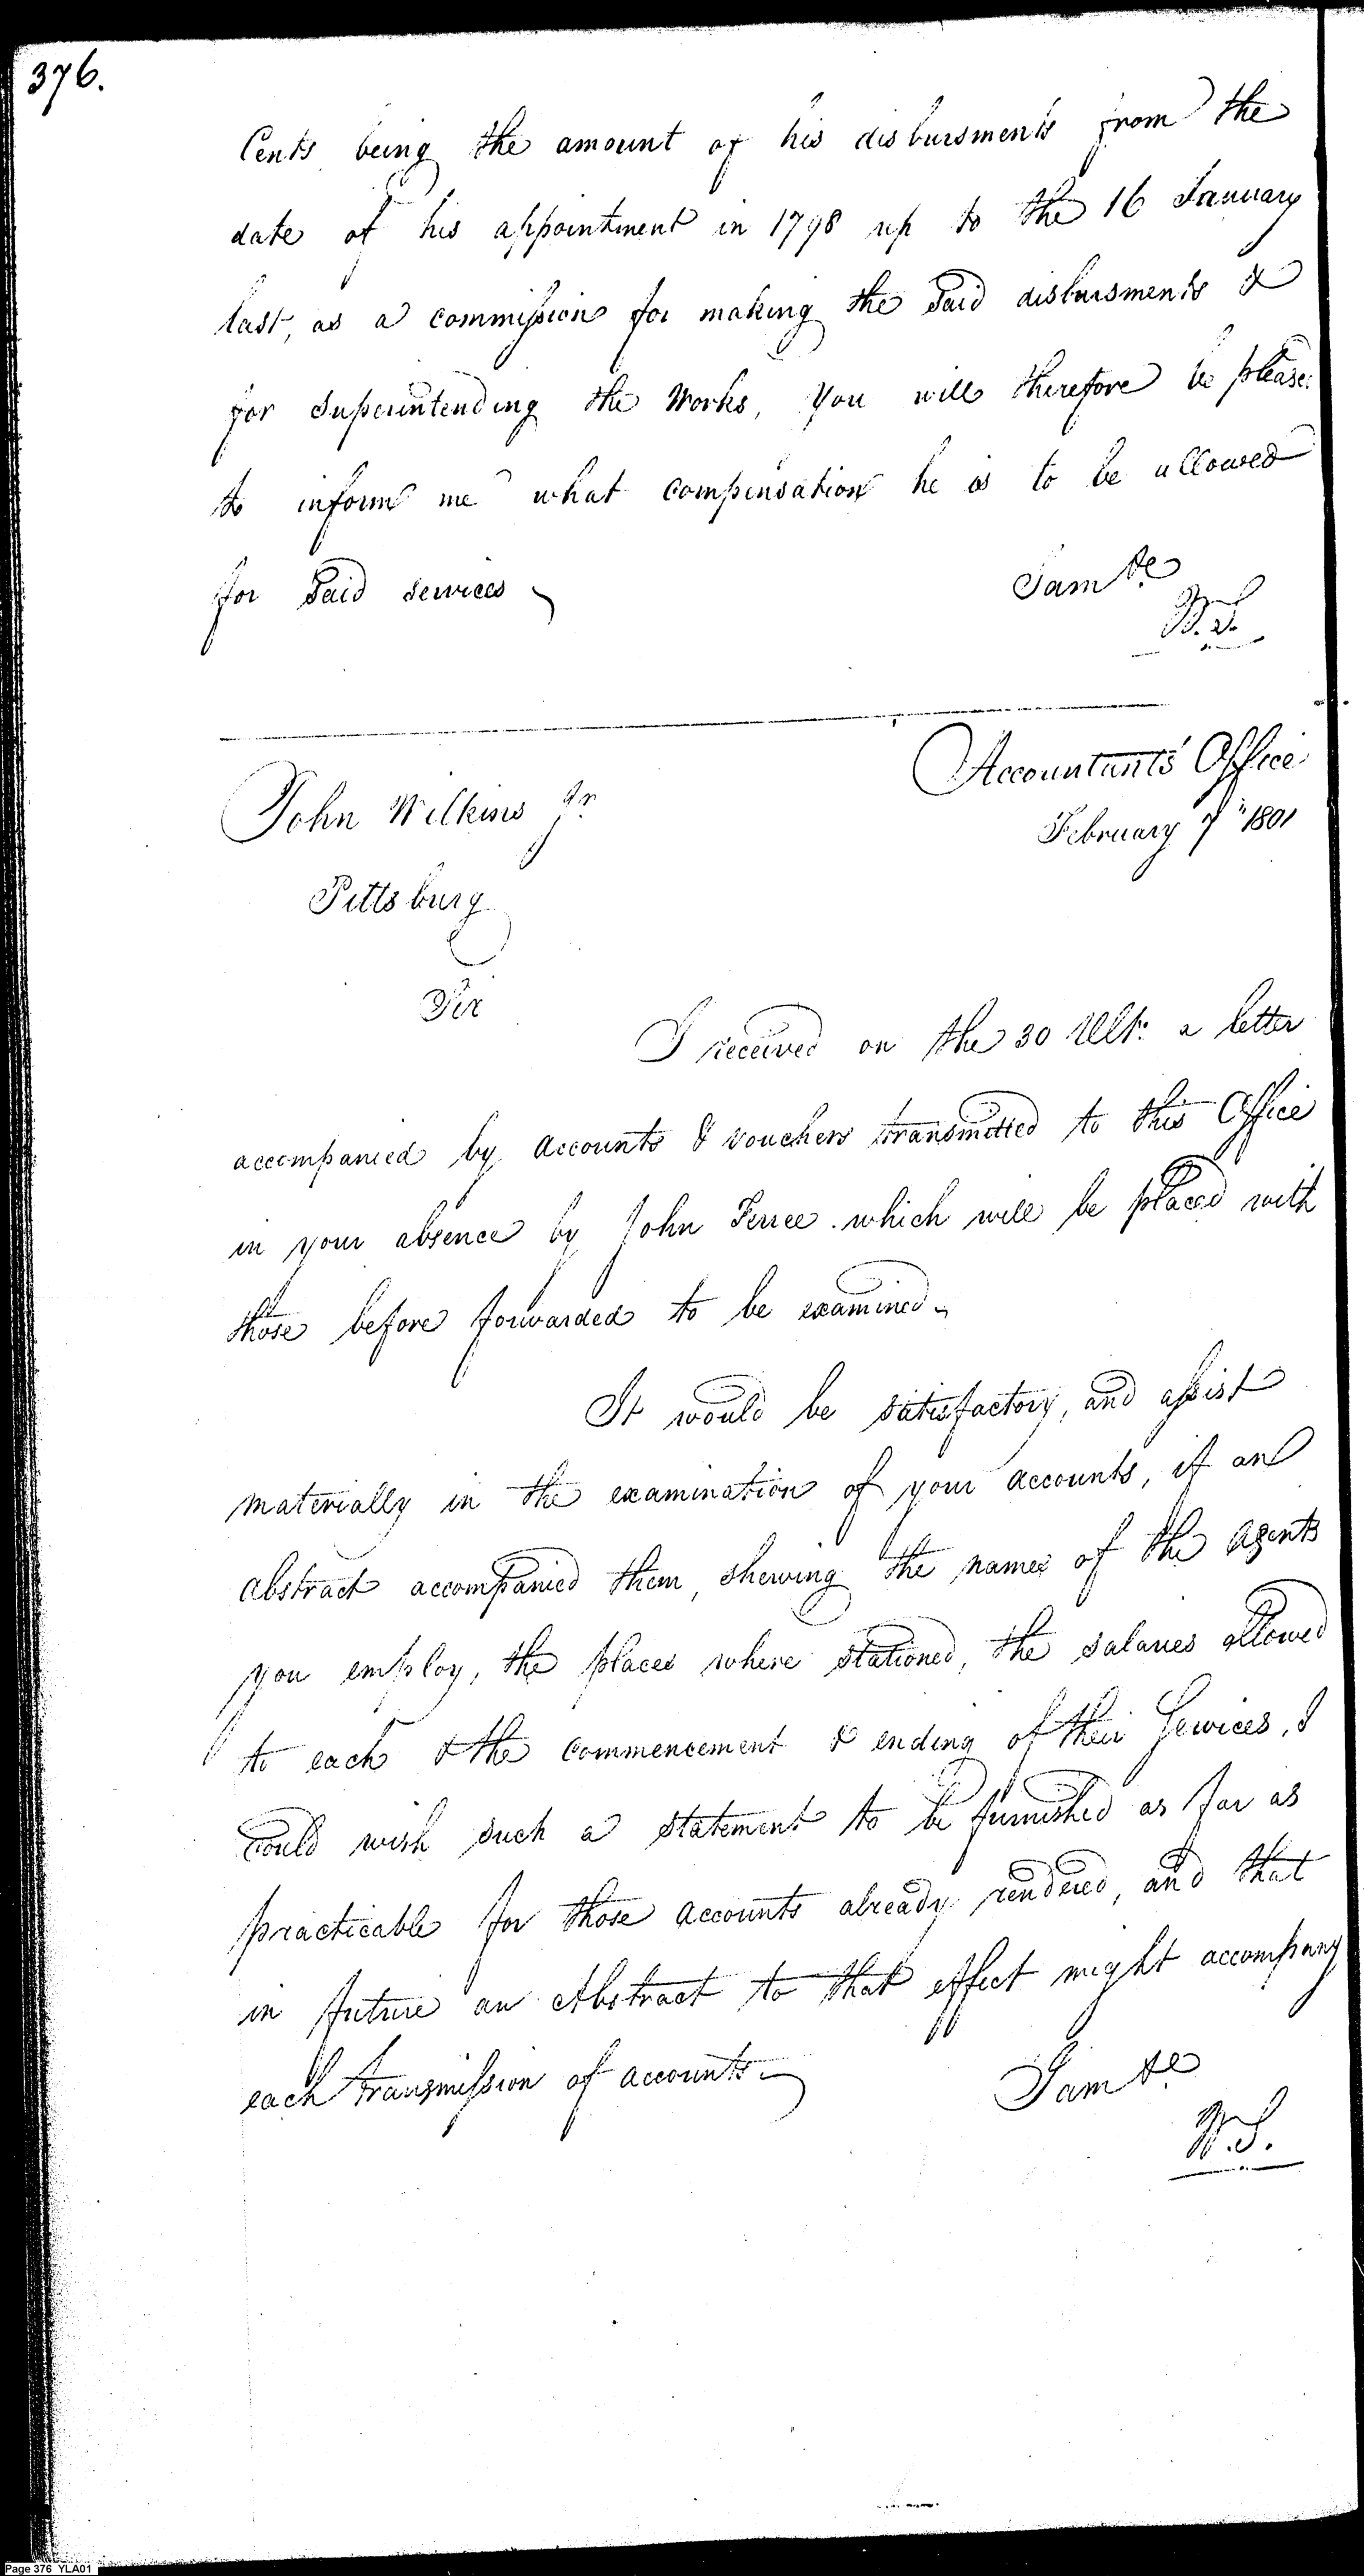 376.
Cents being the amount of his disbursments from the
date of his appointment in 1798 up to the 16 January
last, as a commission for making the said disbursments &
for superintending the Works, You will therefore be please
to inform me what compensation he is to be allowed
for said services
I am &c
W.S.
Accountants Office
John Wilkins Jr
February 7th 1801
Pittsburg
Sir
I received on the 30 Ulto. a letter
accompanied by accounts & vouchers transmitted to this Office
in your absence by John Ferree. which will be placed with
those before forwarded to be examined
It would be satisfactory, and assist
materially in the examination of your accounts, if an
abstract accompanied them, shewing the names of the agents
you employ, the places where stationed, the salaries allowed
to each & the commencement & ending of their Services, I
could wish such a statement to be furnished as far as
practicable for those accounts already rendered, and that
in future an Abstract to that effect might accompany
each transmission of accounts
I am &c
W.S.
Page 376 YLA01